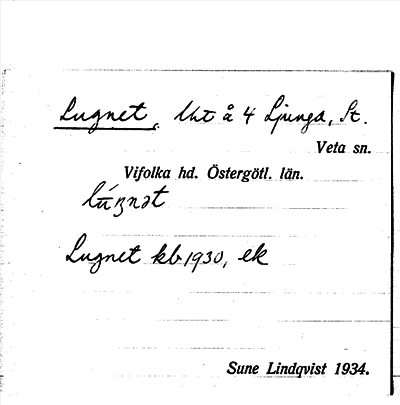 Lugnet, lht å 4 Ljunga, St.
Veta sn.
Vifolka hd. Östergötl. län.
Lugnet kb 1930, ek
Sune Lindqvist 1934.